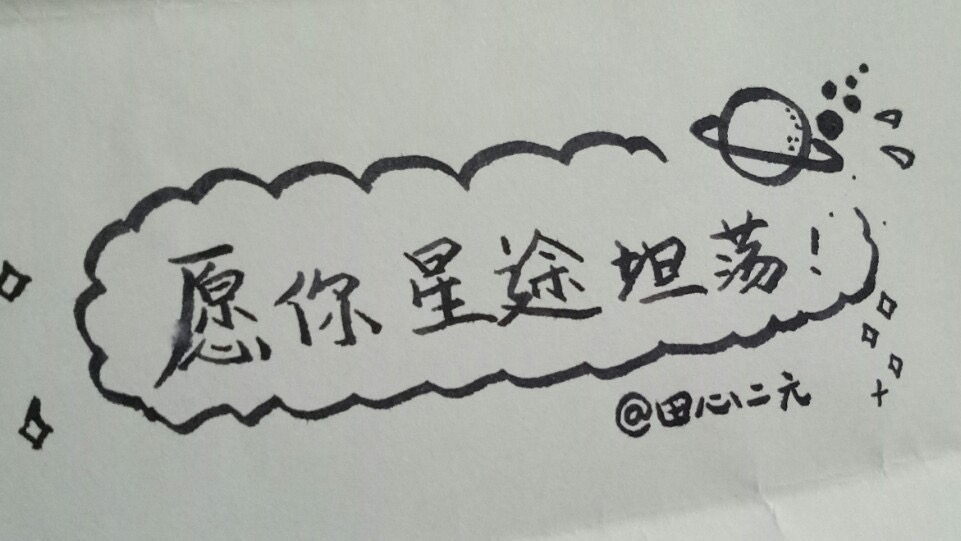 愿你星途坦荡!
@田心二元